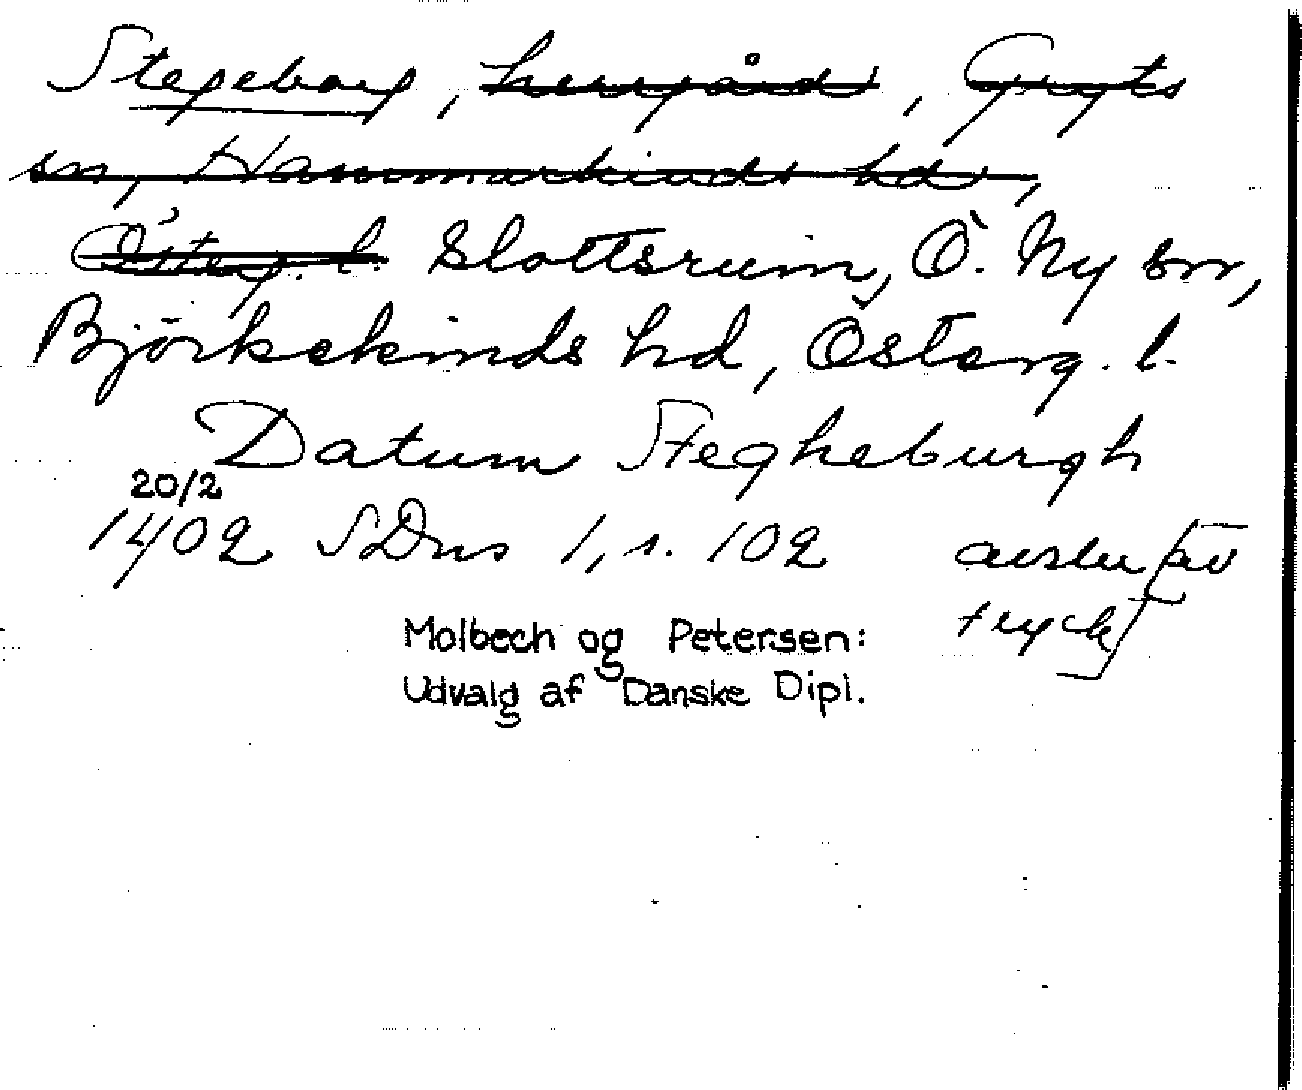 Stegeborg, herrgård, Gryts
sn, Hammarkinds hd,
Österg. l. Slottsruin, Ö. Ny sn,
Björkekinds hd, Österg. l.
Datum Stegheburgh
20/2
1402 SDns 1, s. 102 avskr [av
tryck]
Molbech og Petersen:
Udvalg af Danske Dipl.